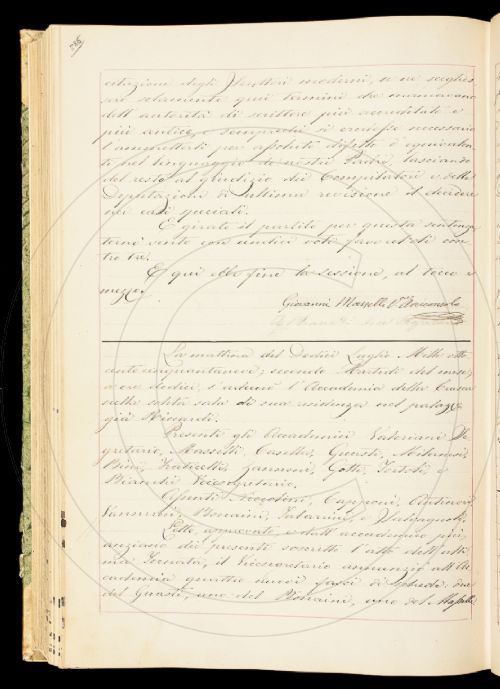 citazione degli Scrittori moderni, se ne sceglies
sero solamente quei termini che mancavano
dell'autorità di scrittore più accreditato e
più antico, e sempreché si credesse necessario
l'ammetterli per assoluto difetto d'equivalen
te nel linguaggio de' nostri Padri, lasciando
del resto al giudizio dei Compilatori e della
Deputazione di ultima revisione il decidere
nei casi speciali.
E girato il partito per questa sentenza
tornò vinto con undici voti favorevoli con
tro tre.
E qui ebbe fine la sessione, al tocco e
mezzo.
Giovanni
La mattina del Dodici Luglio Mille otto
cento cinquantanove, secondo Martedì del mese,
a ore dodici, s'adunò l'Accademia della Crusca
nella solita sala di sua residenza nel palazzo
già Riccardi.
Presenti gli Accademici Valeriani Se
gretario, Casella, Guasti, Milanesi,
Bini, Zannoni, Tortoli, e
Bianchi Vicesegretario.
Assenti Capponi,
Vannucci, Bonaini, e
Letto, approvato, e dall'accademico più
anziano dei presenti soscritto l'atto dell'ulti
ma Tornata, il Vicesegretario annunziò all'Ac
cademia quattro nuovi spogli di schede: due
del Guasti, uno del Bonaini, uno del